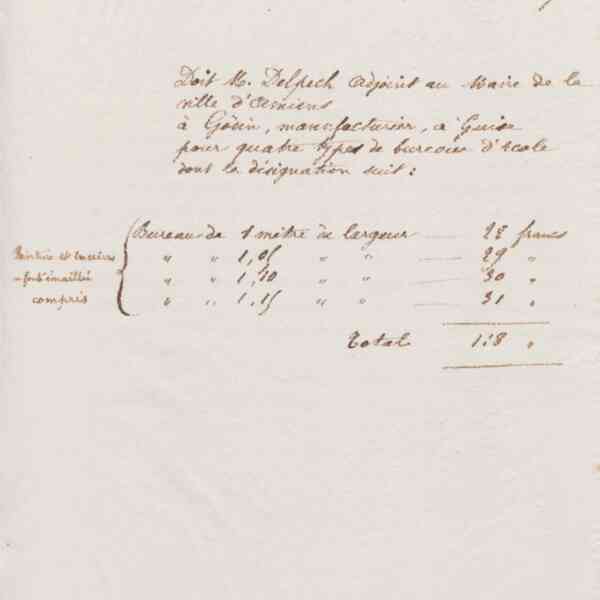 Doit M. Delpech adjoint au Maire de la
ville d'Amiens
à Godin, manufacturier, à Guise
pour quatre types de bureau d'école
dont la désignation suit :
Bureau de 1 mètre de largeur 28 francs
" " 1,05 " " 29 "
" " 1,10 " " 30 "
" " 1,15 " " 31 "
Peinture et encriers
en fonte émaillée
compris
Total 118 "